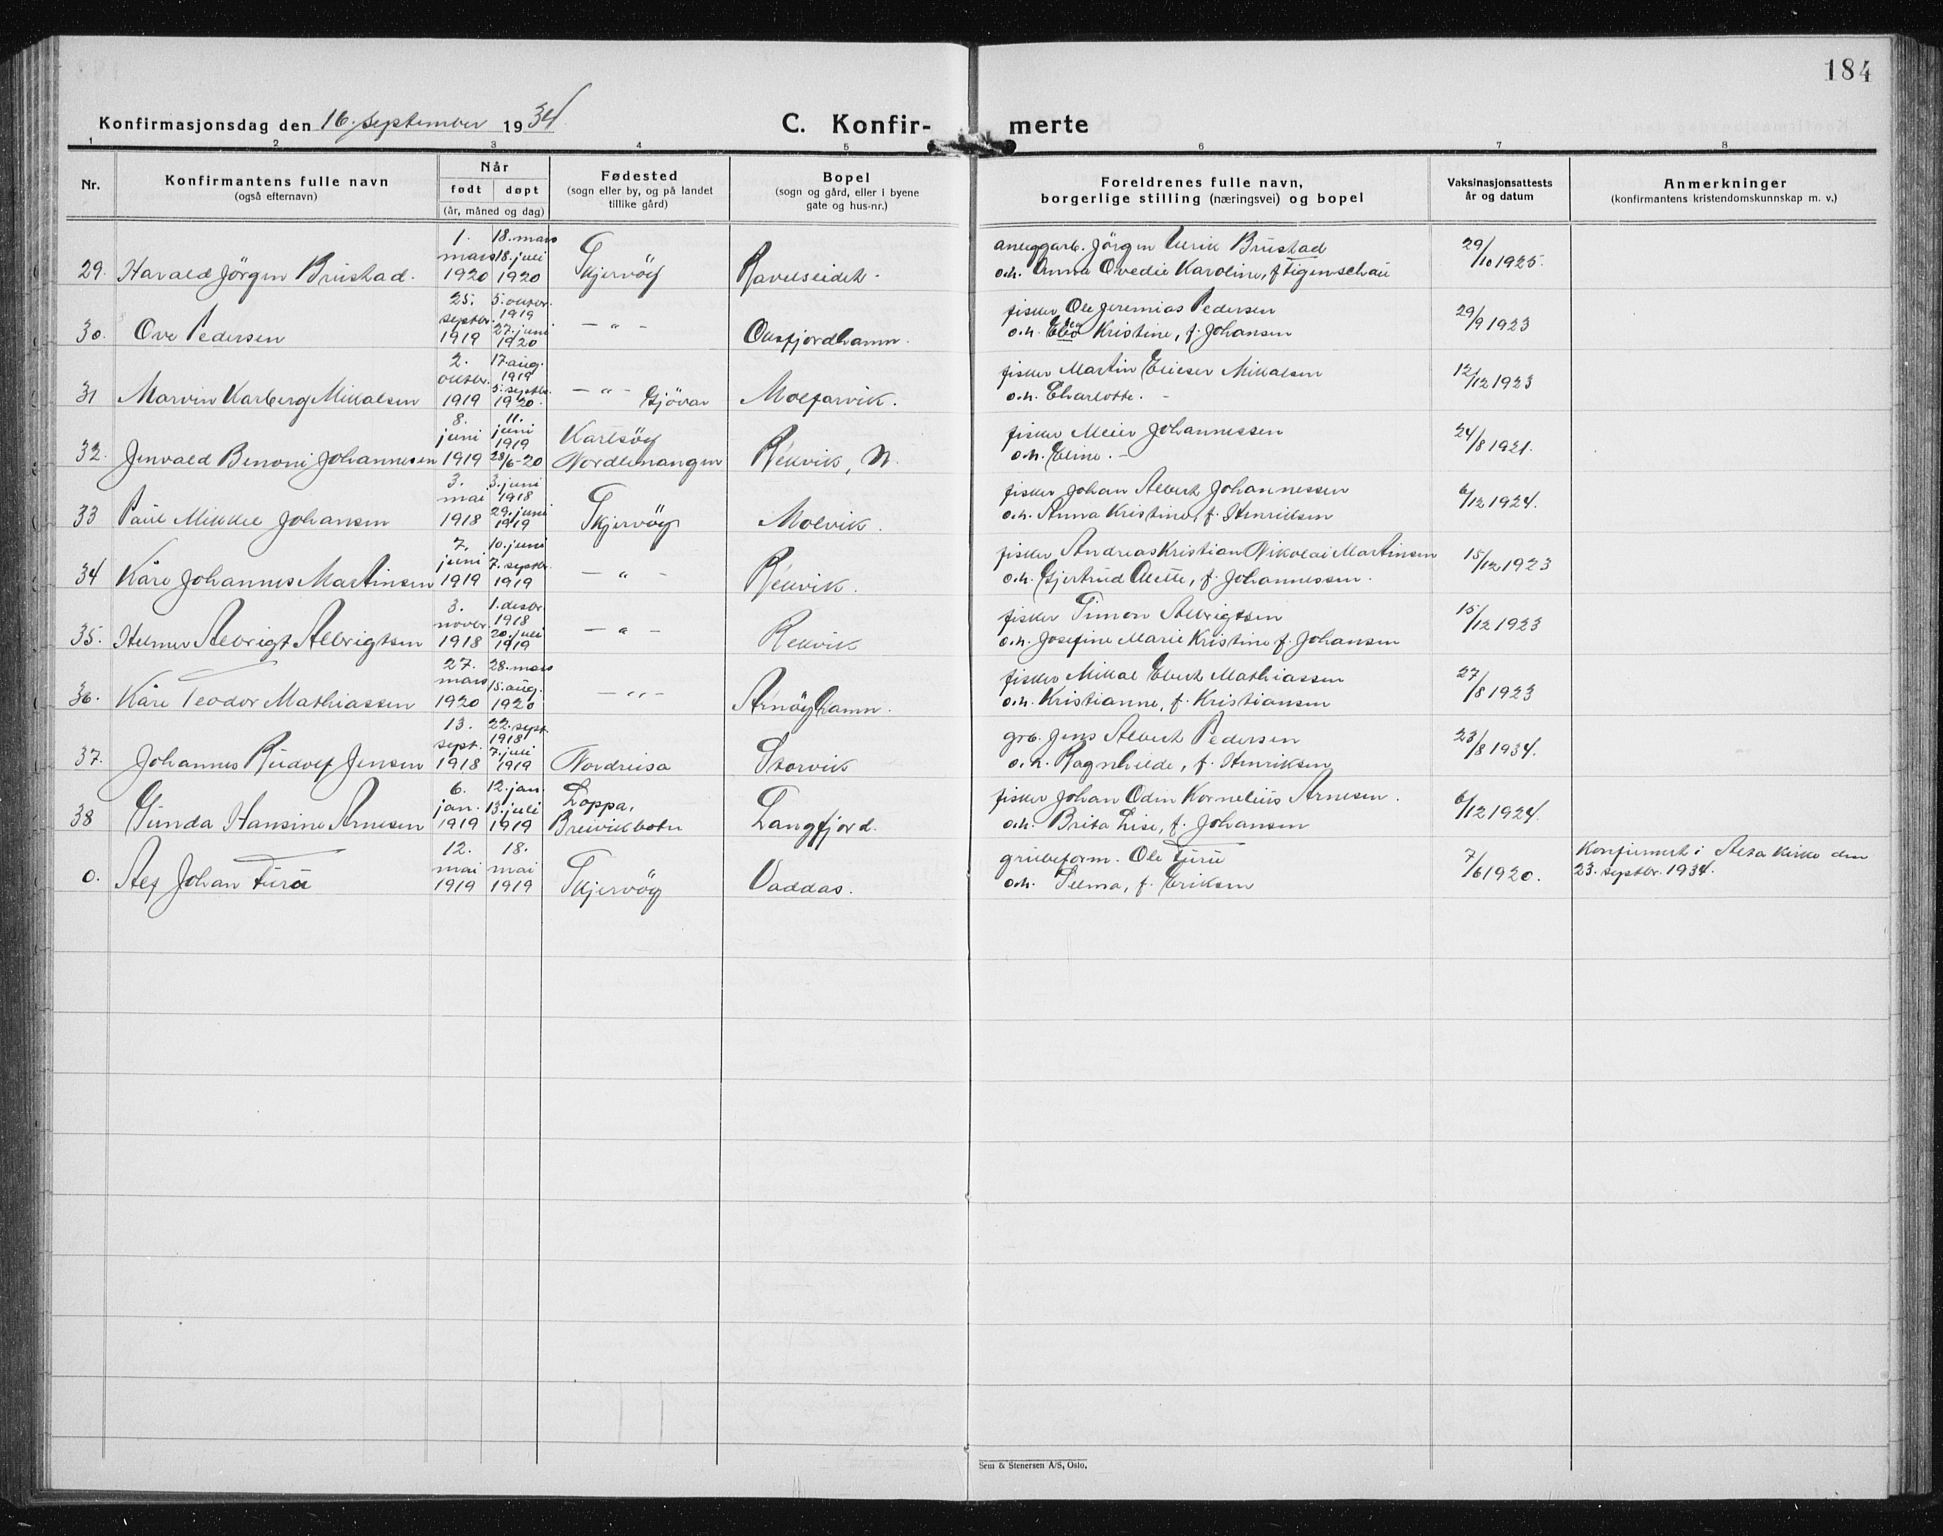 184
Konfirmasjonsdag den 16. september 1934.
C. Konfir- merte
1 2 3 4 5 6 7 8
Nr.
Konfirmantens fulle navn
(også efternavn)
Når
født døpt
(år, måned og dag)
Fødested
(sogn eller by, og på landet
tillike gård)
Bopel
(sogn og gård, eller i byene
gate og hus-nr.)
Foreldrenes fulle navn,
borgerlige stilling (næringsvei) og bopel
Vaksinasjonsattests
år og datum
Anmerkninger
(konfirmantens kristendomskunnskap m. v.)
1. 18. mars anleggarb. Jörgen Ulrik Brustad
mars 18. juli
29. Harald Jörgen Brustad. 1920 1920 Skjervöy Ravelseidet. o.h. Anna Ovedie Karoline, f. Figenschau 29/10 1925.
25. 5. oktbr. fisker Ole Jeremias Pedersen
septbr. 1919
27. juni
30. Ove Pedersen 1919 1920 — " — Oksfjordhamn. o.h. Kristine, f. Johansen 29/9 1923
2. 17. aug. fisker Martin Elieser Mikalsen
oktbr. 1919
5. septbr.
31 Marvin Karberg Mikalsen 1919 1920. — " — Gjövar Molfarvik. o.h. Charlotte. - 12/12 1923
8. 11. Karlsöy fisker Meier Johannessen
juni juni
1919
32. Jenvald Benoni Johannesen 1919 28/6-20 Nordlenangen Rekvik, N. o.h. Eline. - 24/8 1921.
3. 3. juni fisker Johan Albert Johannessen
mai 1918
29. juni
33 Paul Mikkel Johansen 1918 1919 Skjervöy Molvik. o.h. Anna Kristine, f. Henriksen 6/12 1924.
7. 10. juni fisker Andreas Kristian Nikolai Martinsen
juni 7. septbr.
34 Kåre Johannes Martinsen 1919 1919 — " — Rekvik. o.h. Gjertrud Alette, f. Johannessen. 15/12 1923
3. 1. desbr. fisker Simon Albrigtsen
novbr. 1918
20. juli
35. Helmer Albrigt Albrigtsen 1918 1919 — " — Rekvik o.h. Josefine Marie Kristine f. Johansen 15/12 1923
27. 28. mars fisker Mikal Ebert Mathiassen
mars 15. aug.
36. Kåre Teodor Mathiassen 1920 1920 — " — Arnöyhamn. o.h. Kristianne, f. Kristiansen 27/8 1923
13. 22. sept. grb. Jens Albert Pedersen
sept. 1918
7. juli
37. Johannes Rudolf Jensen 1918 1919 Nordreisa Storvik o.h. Ragnhilde, f. Henriksen 23/8 1934.
6. 12. jan. Loppa, fisker Johan Odin Kornelius Arnesen.
jan. 13. juli
38 Gunda Hansine Arnesen 1919 1919 Breivikbotn Langfjord. o.h. Brita Lise, f. Johansen 6/12 1924.
12. 18. grubeform. Ole Furu Konfirmert i Alta kirke den
mai mai
0. Alf Johan Furu 1919 1919 Skjervöy Vaddas. o.h. Selma, f. Eriksen 7/6 1920. 23. septbr. 1934.
Sem & Stenersen A/S, Oslo.